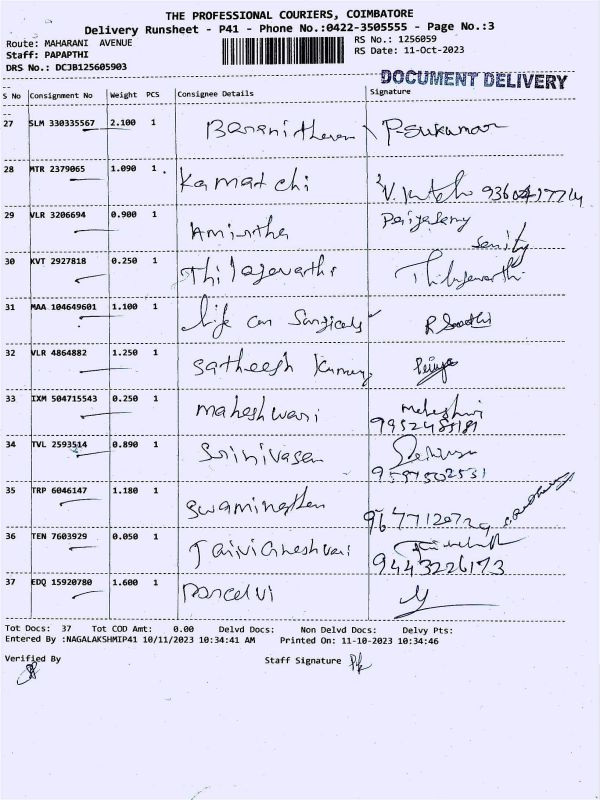 THE PROFESSIONAL COURIERS, COIMBATORE
Delivery Runsheet - P41 - Phone No.:0422-3505555 - Page No.:3
Route: MAHARANI AVENUE RS No.: 1256059
Staff: PAPAPTHI RS Date: 11-Oct-2023
DRS No.: DCJB125605903
DOCUMENT DELIVERY
S No Consignment No Weight PCS Consignee Details Signature
27 SLM 330335567 2.100 1 P-Sukumar
28 MTR 2379065 1.090 1 Kamatchi
29 VLR 3206694 0.900 1 Amirtha
30 KVT 2927818 0.250 1
31 MAA 104649601 1.100 1 life can Surgicals
32 VLR 4864882 1.250 1 Satheesh Kumar
33 IXM 504715543 0.250 1 maheshwari
34 TVL 2593514 0.890 1 Srinivasan
9597502531
35 TRP 6046147 1.180 1 Swaminathan
36 TEN 7603929 0.050 1
9443226173
37 EDQ 15920780 1.600 1
Tot Docs: 37 Tot COD Amt: 0.00 Delvd Docs: Non Delvd Docs: Delvy Pts:
Entered By :NAGALAKSHMIP41 10/11/2023 10:34:41 AM Printed On: 11-10-2023 10:34:46
Verified By Staff Signature